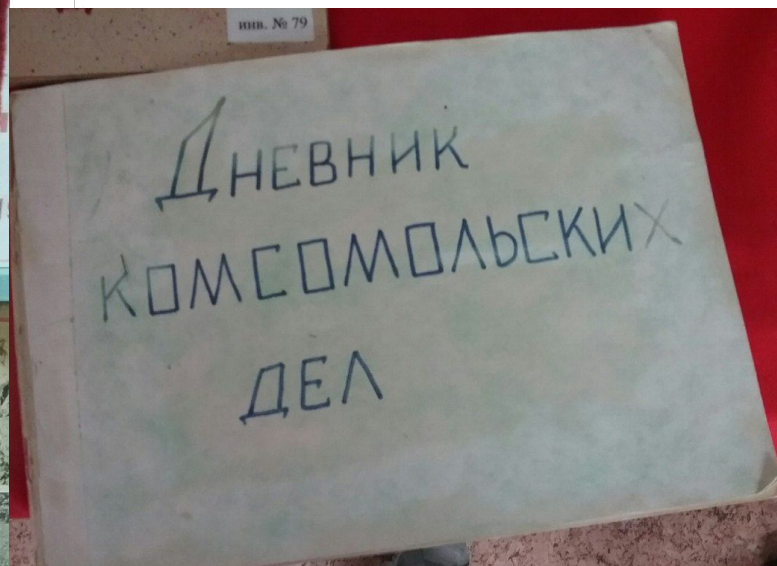 инв. № 79
Дневник
комсомольских
дел